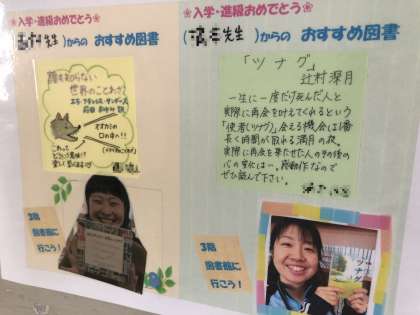 ❀入学・進級おめでとう❀
先生)からの おすすめ図書
誰も知らない
世界のことわざ
エラ・フランシス・サンダース
前田まゆみ 訳
オオカミの
口の中へ!!
これって
どういう意味!?
楽しく学べます
3階
図書館に
行こう!
❀入学・進級おめでとう❀
先生)からの おすすめ図書
「ツナグ」
辻村深月
一生に一度だけ死んだ人と
実際に再会を叶えてくれるという
「使者(ツナグ)」。会える機会は1番
長く時間が取れる満月の夜。
実際に再会を果たせた人の夜の後の
心の変化は…。感動作なので
ぜひ読んで下さい。
3階
図書館に
行こう!
ツナグ